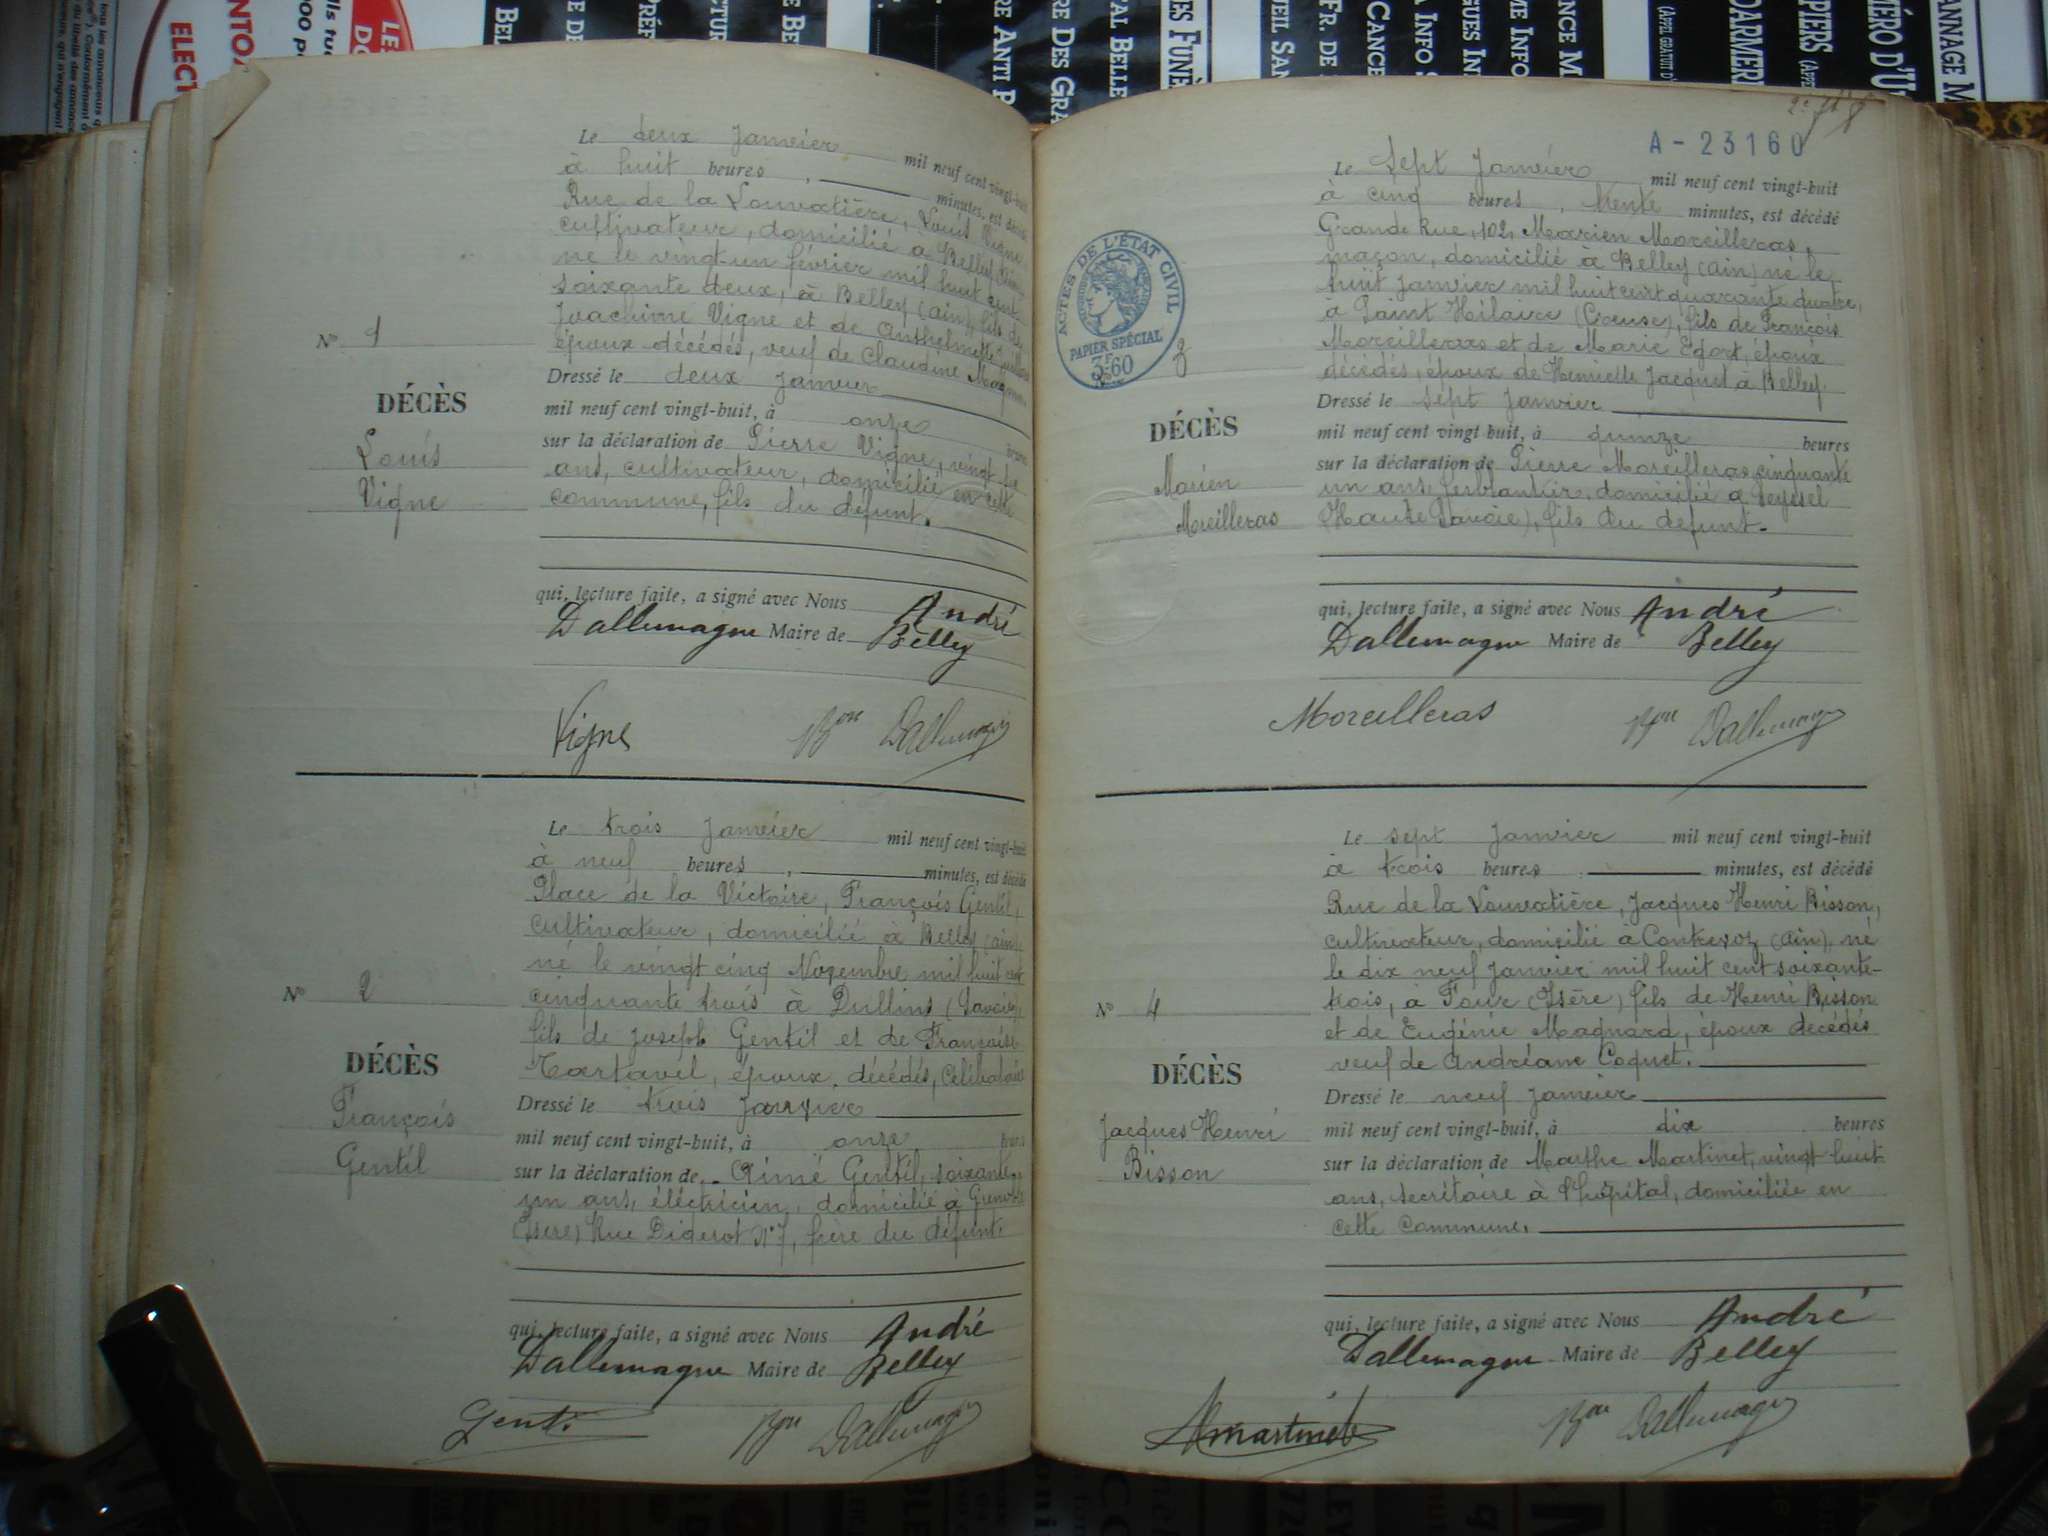 Le deux Janvier mil neuf cent vingt-huit
à huit heures, minutes, est décédé
Rue de la Louvatière, Louis Vigne
cultivateur, domicilié à Belley (Ain)
né le vingt-un février mil huit cent
soixante deux, à Belley (Ain), fils de
Joachime Vigne et de Anthelmette
époux décédés, veuf de Claudine
Nº 1
Dressé le deux janvier
DÉCÈS
mil neuf cent vingt-huit, à onze heures
Louis
sur la déclaration de Pierre Vigne, vingt
Vigne
ans, cultivateur, domicilié en cette
commune, fils du défunt.
qui, lecture faite, a signé avec Nous André
Dallemagne Maire de Belley
Vigne Bon Dallemagne
Le trois Janvier mil neuf cent vingt-huit
à neuf heures, minutes, est décédé
Place de la Victoire, François Gentil,
cultivateur, domicilié à Belley (Ain)
né le vingt cinq Novembre mil huit cent
Nº 2
cinquante trois à Dullins (Savoie)
fils de Joseph Gentil et de Françoise
Tartavel, époux décédés, célibataire
DÉCÈS
Dressé le trois janvier
François
mil neuf cent vingt-huit, à onze heures
Gentil
sur la déclaration de Aimé Gentil, soixante
un ans, éléctricien, domicilié à Grenoble
(Isère) Rue Diderot Nº 7, frère du défunt.
qui, lecture faite, a signé avec Nous André
Dallemagne Maire de Belley
Gentil Bon Dallemagne
A - 23160
Le sept Janvier mil neuf cent vingt-huit
à cinq heures, trente minutes, est décédé
Grande Rue, 102, Marien Moreilleras,
maçon, domicilié à Belley (Ain) né le
huit janvier mil huit cent quarante quatre,
à Saint Hilaire (Creuse), fils de François
Moreilleras et de Marie époux
décédés, époux de Henriette Jacquet à Belley.
ACTES DE L'ÉTAT CIVIL
PAPIER SPÉCIAL
3F60
3
Dressé le sept Janvier
DÉCÈS
mil neuf cent vingt huit, à quinze heures
Marien
Moreilleras
sur la déclaration de Pierre Moreilleras, cinquante
un ans, ferblantier, domicilié à Seyssel
(Haute Savoie), fils du défunt.
qui, lecture faite, a signé avec Nous André
Dallemagne Maire de Belley
Moreilleras Bon Dallemagne
Le sept Janvier mil neuf cent vingt-huit
à trois heures minutes, est décédé
Rue de la Louvatière, Jacques Henri Bisson,
cultivateur, domicilié à Contrevoz (Ain), né
le dix neuf janvier mil huit cent soixante-
trois, à Four (Isère) fils de Henri Bisson
Nº 4
et de Eugénie Magnard, époux decédés
veuf de Andréane Coquet.
DÉCÈS
Dressé le neuf janvier
Jacques Henri
Bisson
mil neuf cent vingt-huit, à dix heures
sur la déclaration de Marthe Martinet, vingt huit
ans, secrétaire à l'hôpital, domiciliée en
cette commune.
qui, lecture faite, a signé avec Nous André
Dallemagne Maire de Belley
Martinet Bon Dallemagne